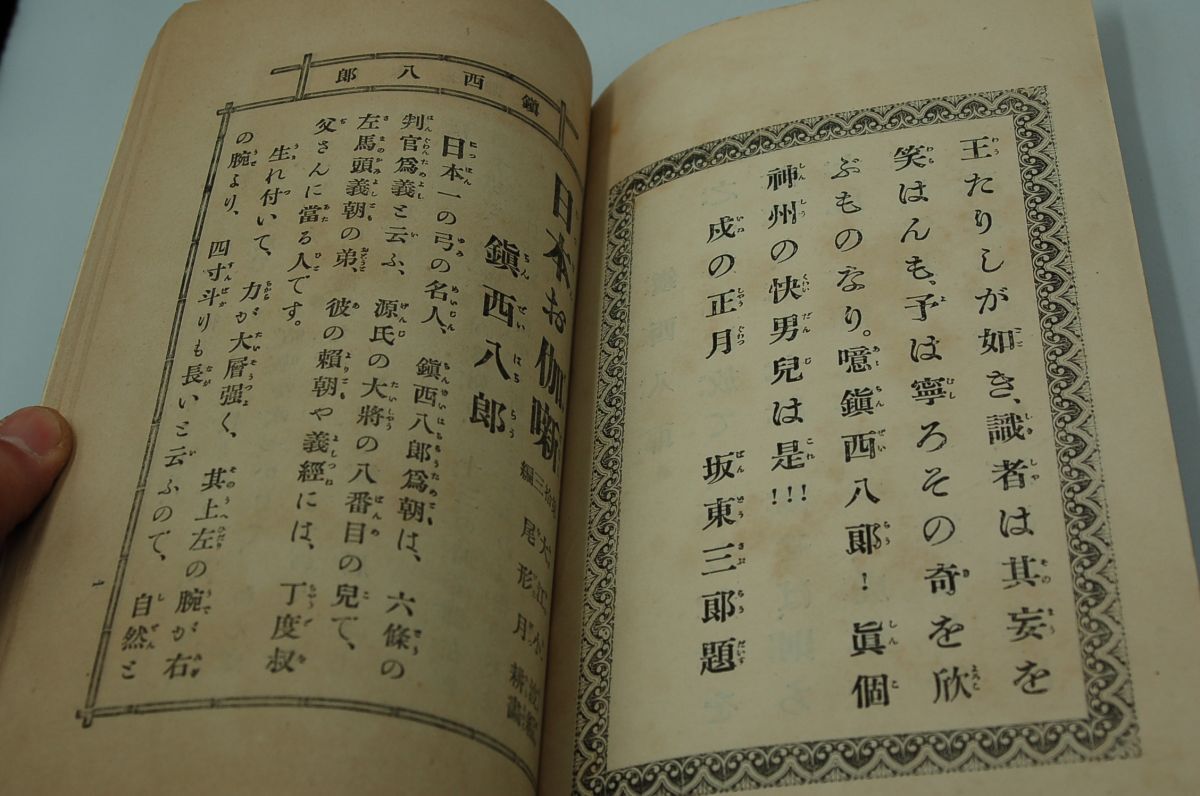 王たりしが如き、識者は其妄を
笑はんも、予は寧ろその奇を欣
ぶものなり。噫鎭西八郎！眞個
神州の快男兒は是!!!
戌の正月　坂東三郎題
鎭西八郎
日本お伽噺
三編
鎭西八郎
大江小
尾形月耕畫
日本一の弓の名人、鎭西八郎爲朝は、六條の
判官爲義と云ふ、源氏の大將の八番目の兒で、
左馬頭義朝の弟、彼の頼朝や義經には、丁度叔
父さんに當る人です。
生れ付いて、力が大層强く、其上左の腕が右
の腕より、四寸斗りも長いと云ふので、自然と
一